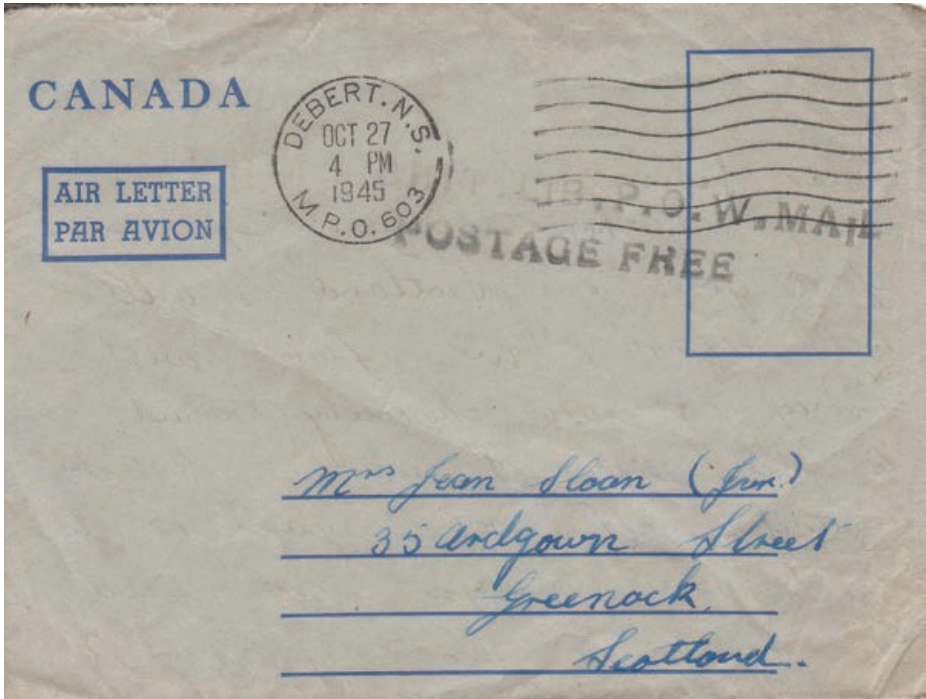 CANADA
AIR LETTER
PAR AVION
DEBERT. N.S.
OCT 27
4 PM
1945
M.P.O. 603
LIB. P.O.W. MAIL
POSTAGE FREE
Mrs Jean Sloan (Jnr.)
35 Ardgown Street
Greenock,
Scotland.